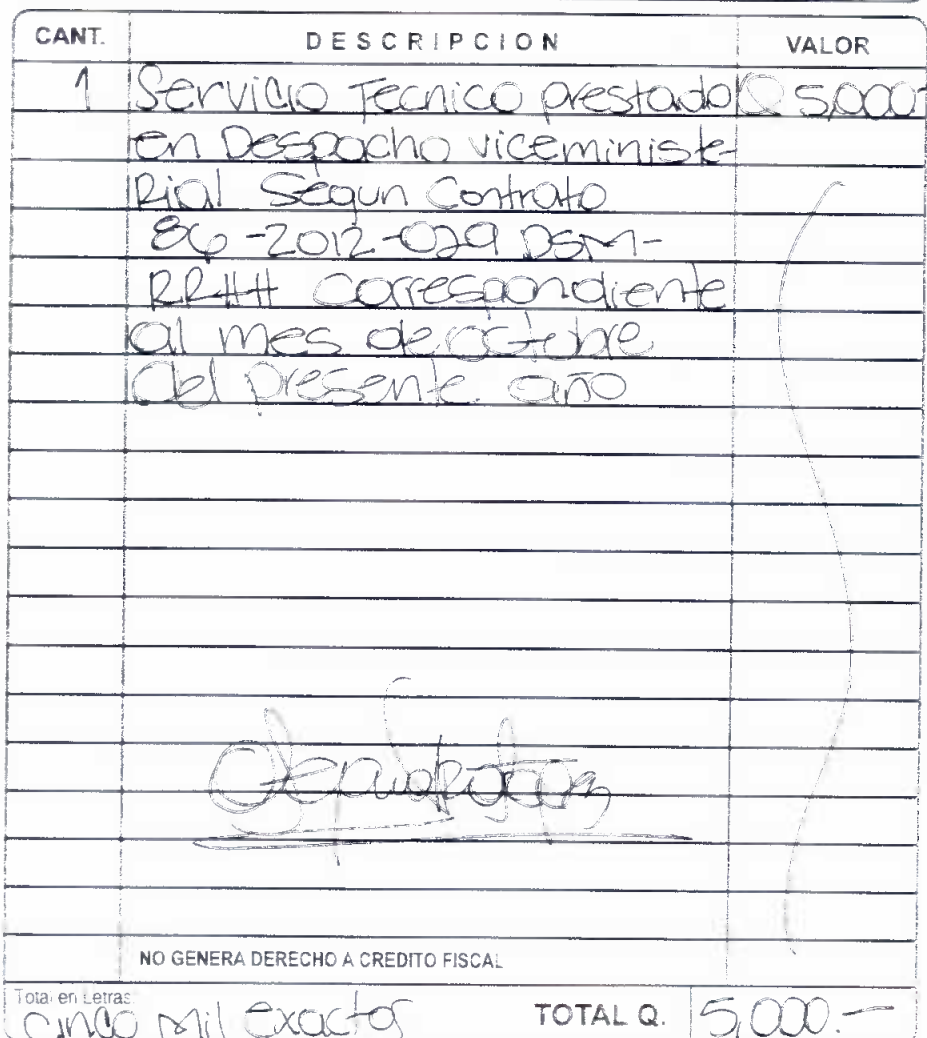 CANT. DESCRIPCION VALOR
1 Servicio Tecnico prestado Q 5,000-
en Despacho viceministe-
Rial Segun Contrato
86-2012-029 DSM-
RRHH Correspondiente
al mes de octubre
del presente año
NO GENERA DERECHO A CREDITO FISCAL
Total en Letras:
cinco mil exactos TOTAL Q. 5,000.-